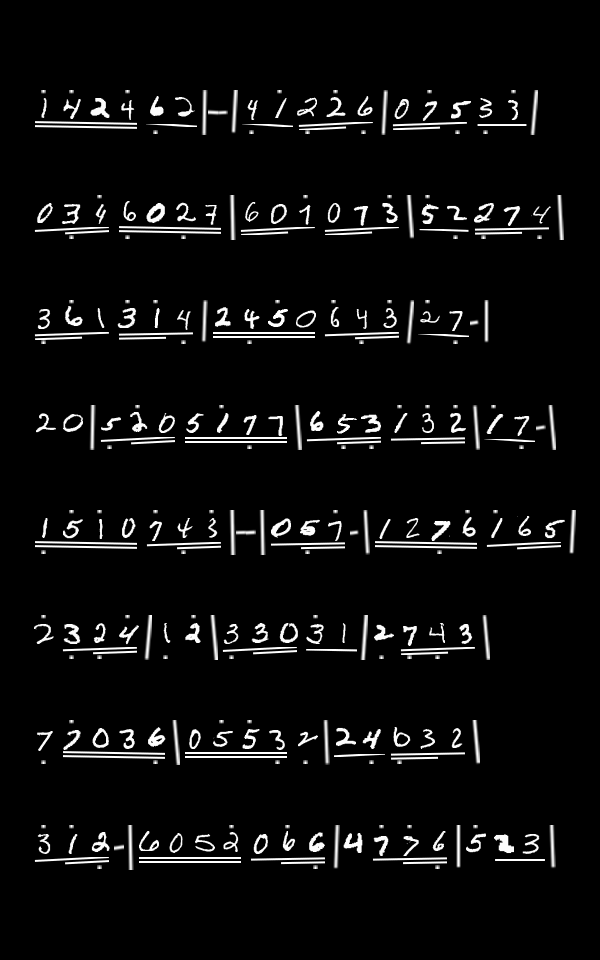 142462|-|41226|07533|
0346027|601073|52274|
361314|2450643|27-|
20|5205177|653132|17-|
1510743|-|057-|1276165|
2324|12|33031|2743|
772036|05532|24632|
312-|6052066|4776|523|